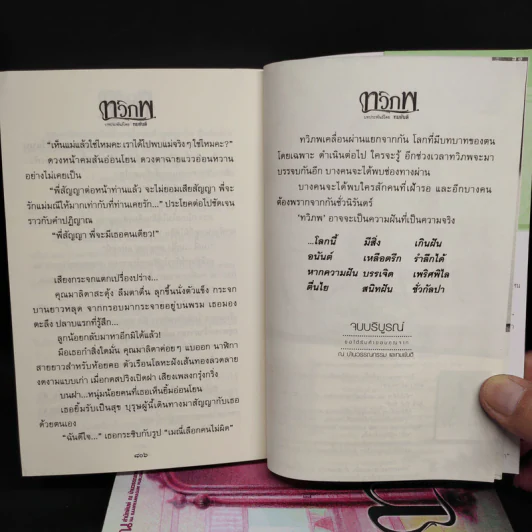 ทวิภพ
บทประพันธ์โดย ทมยันตี
"เห็นแม่แล้วใช่ไหมคะ เราได้ไปพบแม่จริงๆ ใช่ไหมคะ?"
ดวงหน้าคมสันอ่อนโยน ดวงตาฉายแววอ่อนหวาน
อย่างไม่เคยเป็น
"พี่สัญญาต่อหน้าท่านแล้ว จะไม่ยอมเสียสัญญา พี่จะ
รักแม่มณีให้มากเท่ากับที่ท่านเคยรัก..." ประโยคต่อไปชัดเจน
ราวกับคำปฏิญาณ
"พี่สัญญา พี่จะมีเธอคนเดียว!"
เสียงกระจกแตกเปรื่องปร่าง...
คุณมาลิตาสะดุ้ง ลืมตาตื่น ลุกขึ้นนั่งตัวแข็ง กระจก
บานยาวหลุด จากกรอบมากระจายอยู่บนพรม เธอมอง
ตะลึง ปลาบแรกที่รู้สึก...
ลูกน้อยกลับมาหาอีกมิได้แล้ว!
มือเธอกำสิ่งใดมั่น คุณมาลิตาค่อยๆ แบออก นาฬิกา
สายยาวสำหรับห้อยคอ ตัวเรือนโลหะฝังเส้นทองลวดลาย
งดงามแบบเก่า เมื่อกดสปริงเปิดฝา เสียงเพลงกรุ๋งกริ๋ง
บนฝา...หนุ่มน้อยคนที่เธอเห็นยิ้มอ่อนโยน
เธอยิ้มรับเป็นสุข บุรุษผู้นี้เดินทางมาสัญญากับเธอ
ด้วยตนเอง
"ฉันดีใจ..." เธอกระซิบกับรูป "เมณี่เลือกคนไม่ผิด"
๘๓๖
ทวิภพ
บทประพันธ์โดย ทมยันตี
ทวิภพเคลื่อนผ่านแยกจากกัน โลกที่มีบทบาทของตน
โดยเฉพาะ ดำเนินต่อไป ใครจะรู้ อีกช่วงเวลาทวิภพจะมา
บรรจบกันอีก บางคนจะได้พบช่องทางผ่าน
บางคนจะได้พบใครสักคนที่เฝ้ารอ และอีกบางคน
ต้องพรากจากกันชั่วนิรันดร์
'ทวิภพ' อาจจะเป็นความฝันที่เป็นความจริง
...โลกนี้ มีสิ่ง เกินฝัน
อนันต์ เหลือตรึก รำลึกได้
หากความฝัน บรรเจิด เพริศพิไล
คืนใย สนิทฝัน ชั่วกัลปา
จบบริบูรณ์